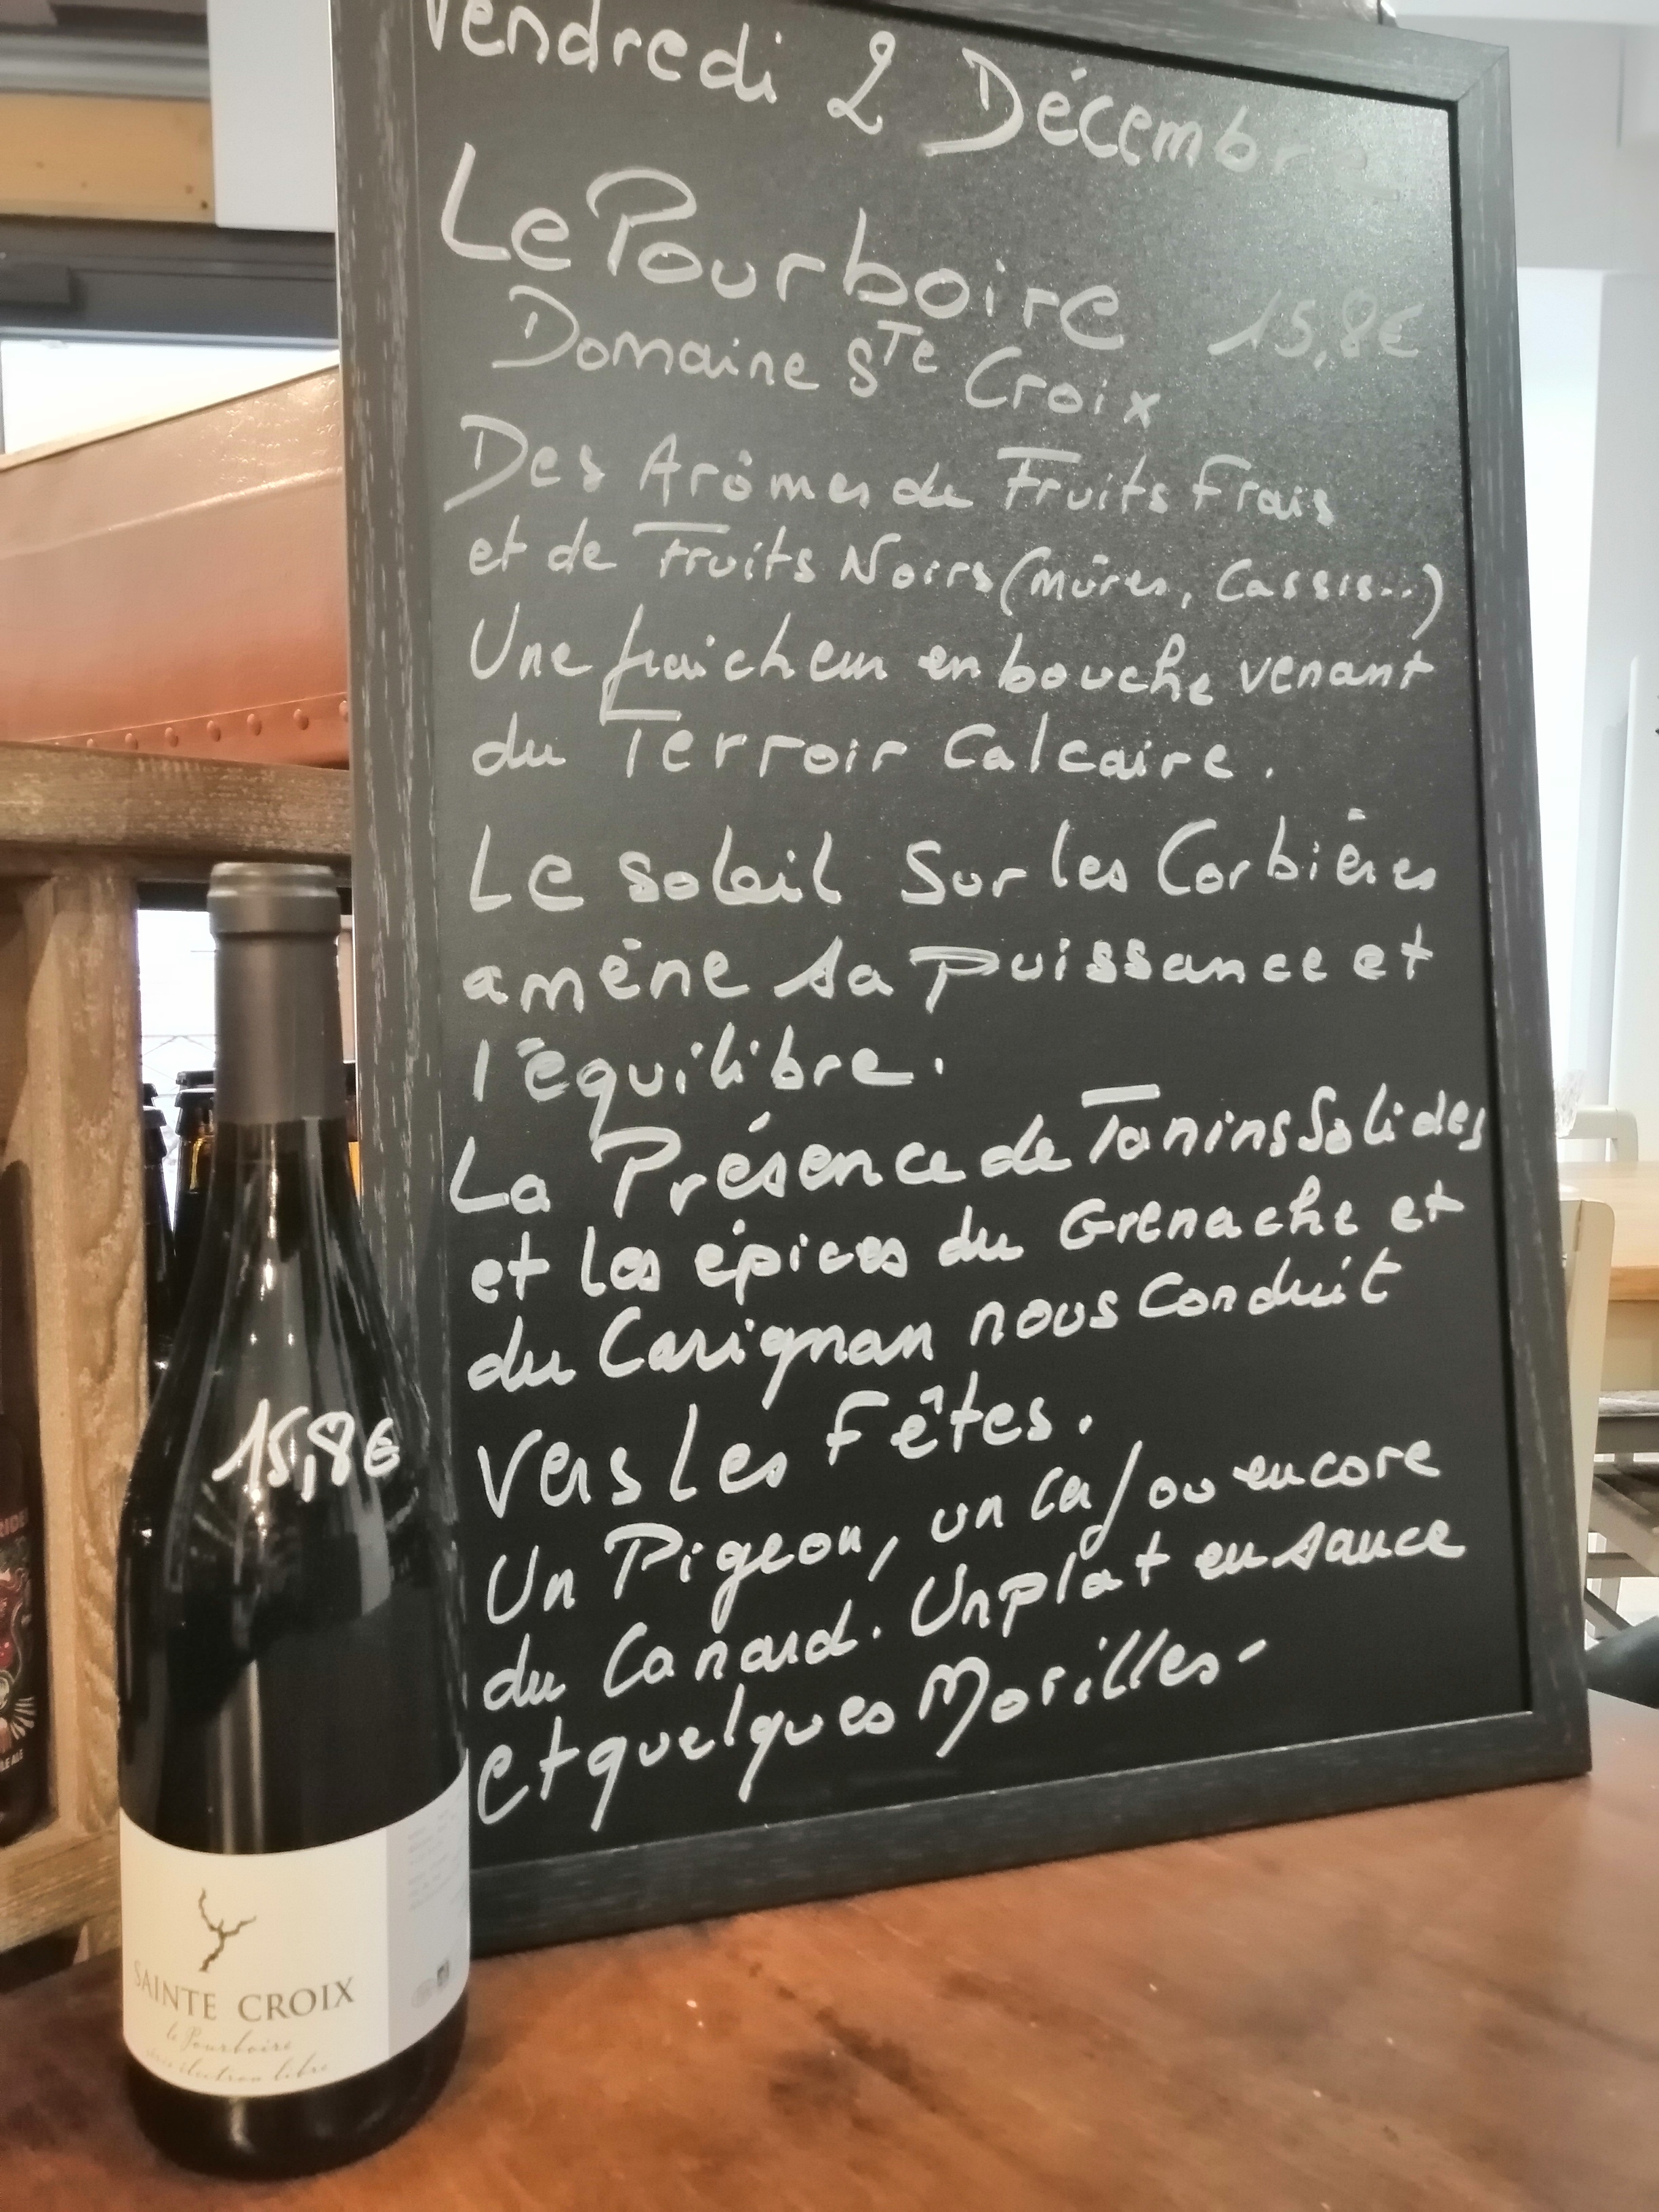 Vendredi 2 Décembre
Le Pourboire 15,8€
Domaine Ste Croix
Des Arômes de Fruits Frais
et de Fruits Noirs (mûres, Cassis...)
Une fraîcheur en bouche venant
du Terroir Calcaire.
Le soleil sur les Corbières
amène sa puissance et
l'équilibre.
La Présence de Tanins Solides
et les épices du Grenache et
du Carignan nous conduit
vers les Fêtes.
Un Pigeon, un cerf ou encore
du Canard. Un plat en sauce
et quelques Morilles.
15,8€
SAINTE CROIX
le Pourboire
électron libre